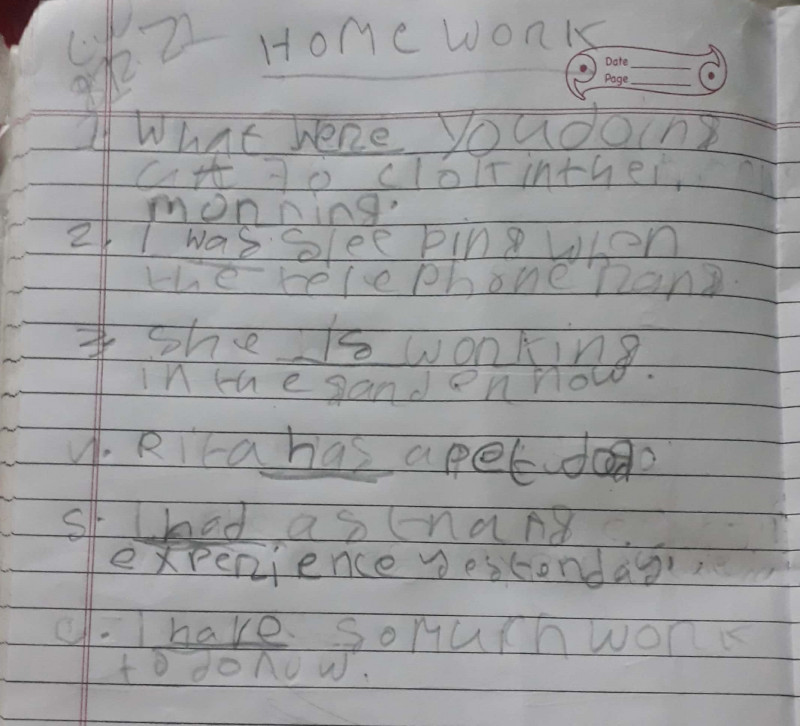 HOMEWORK
Date
Page
1. What were you doing
at 70 clolt in thei
monning.
2. I was sleeping when
the telephone nang.
3. She is wonking
in the ganden now.
4. Rita has a pet dog
5. I had a stnang
expenience yestenday.
6. I have so much wonk
to do now.